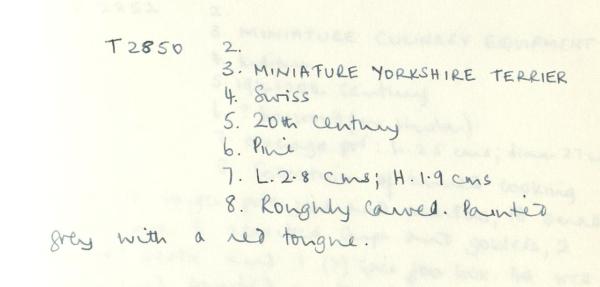 T2850 2.
3. MINIATURE YORKSHIRE TERRIER
4. Swiss
5. 20th Century
6. Pine
7. L.2.8 cms; H.1.9 cms
8. Roughly carved. Painted
grey with a red tongue.